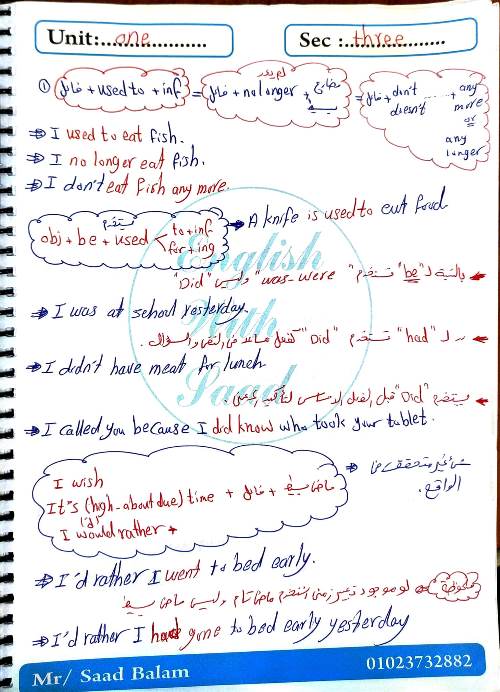 Unit:....one............ Sec :....three............
① فاعل + used to + inf = فاعل + no longer + مضارع بسيط = فاعل + don't doesn't ........ + any more or any longer
لم يعد
⇒ I used to eat fish.
⇒ I no longer eat fish.
⇒ I don't eat fish any more.
obj + be + used to + inf for + ing ⇒ A knife is used to cut food
يستخدم
English With Saad
بالنسبة لـ "be" نستخدم "was - were" وليس "Did"
⇒ I was at school yesterday.
لـ "had" نستخدم "Did" كفعل مساعد في النفي والسؤال.
⇒ I didn't have meat for lunch
يستخدم "Did" قبل الفعل الأساسي لتأكيد
⇒ I called you because I did know who took your tablet.
I wish
It's (high - about due) time + فاعل + ماضي بسيط
I would rather +
('d)
الواقع.
⇒ I'd rather I went to bed early.
ملحوظة لو موجود تعبير زمني نستخدم ماضي تام وليس ماضي بسيط
⇒ I'd rather I had gone to bed early yesterday
Mr/ Saad Balam 01023732882